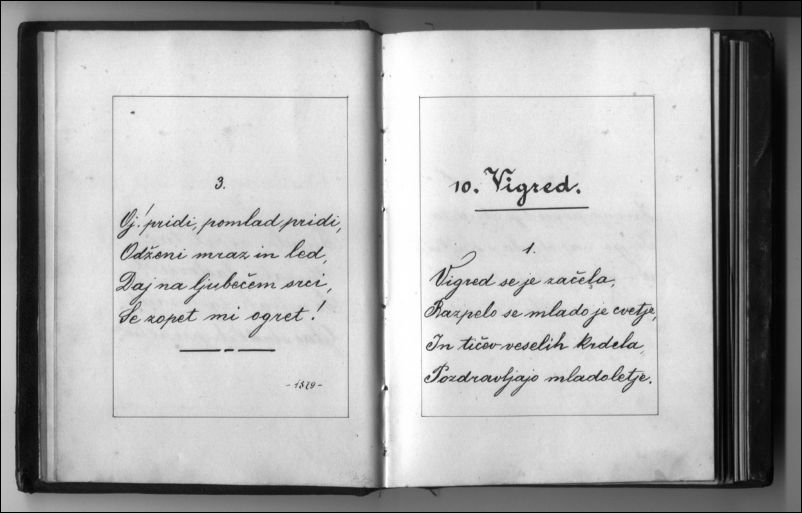 3.
Oj! pridi, pomlad pridi,
Odženi mraz in led,
Daj na ljubečem srci,
Se zopet mi ogret!
-1879-
10. Vigred.
1.
Vigred se je začela,
Razpelo se mlado je cvetje,
In tičev veselih krdela,
Pozdravljajo mladoletje.